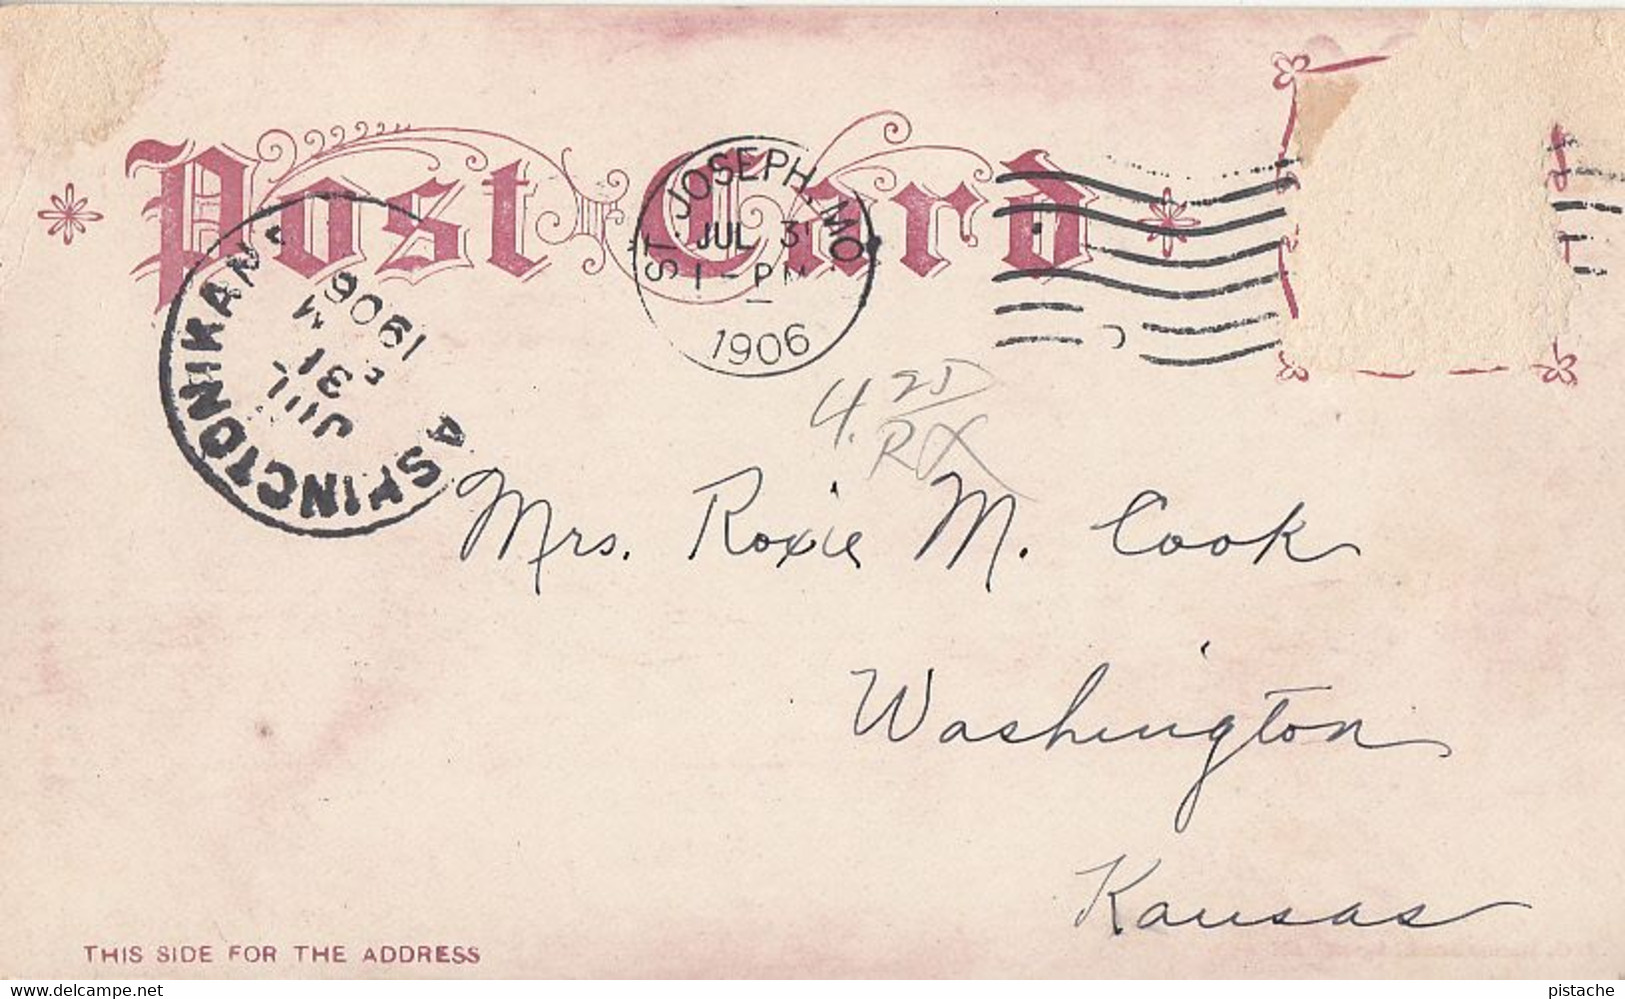 Post Card
ST. JOSEPH, MO.
JUL 31
1-PM
1906
WASHINGTON KANS
JUL
31
M
1906
4.25
Mrs. Roxie M. Cook
Washington
Kansas
THIS SIDE FOR THE ADDRESS
www.delcampe.net
pistache